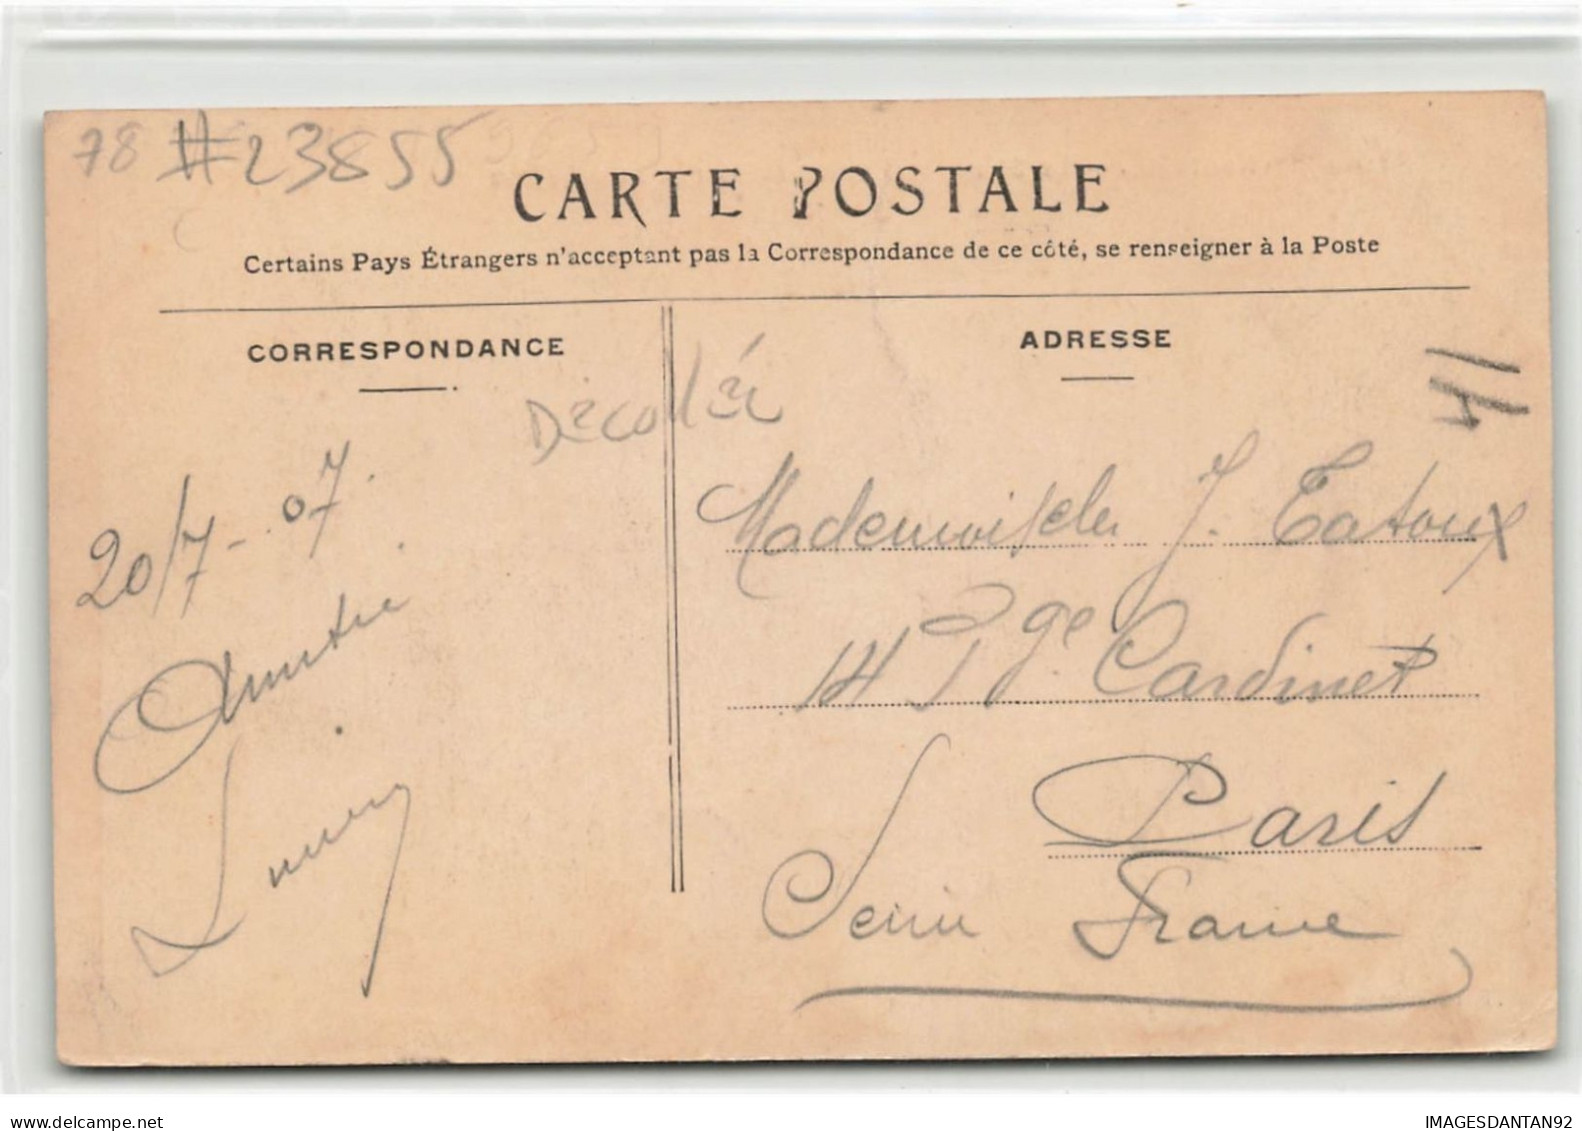 78 #23855
CARTE POSTALE
Certains Pays Étrangers n'acceptant pas la Correspondance de ce côté, se renseigner à la Poste
CORRESPONDANCE
ADRESSE
41
Décollée
20/7-07.
Mademoiselle J. Tatoux
14 Pge Cardinet
Paris
Seine France
www.delcampe.net
IMAGESDANTAN92